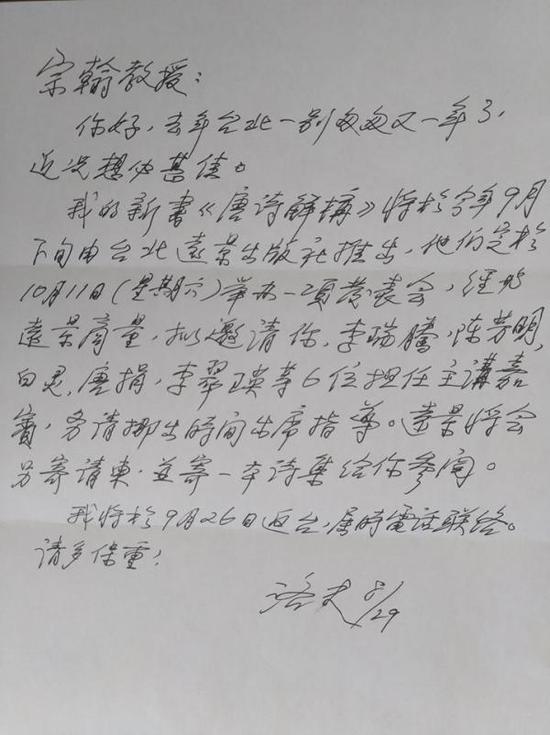 宗翰教授：
你好，去年台北一別匆匆又一年了，
近况想必甚佳。
我的新書《唐诗解構》将於今年9月
下旬由台北遠景出版社推出，他们定於
10月11日(星期六)举办一項发表会，經与
遠景商量，拟邀请你，李瑞腾，陈芳明，
白灵，唐捐，李翠瑛等6位担任主講嘉
賓，务请挪出时间出席指导。遠景将会
另寄请柬，並寄一本诗集给你参阅。
我将於9月26日返台，届時電话联络。
请多保重！
洛夫 8/29